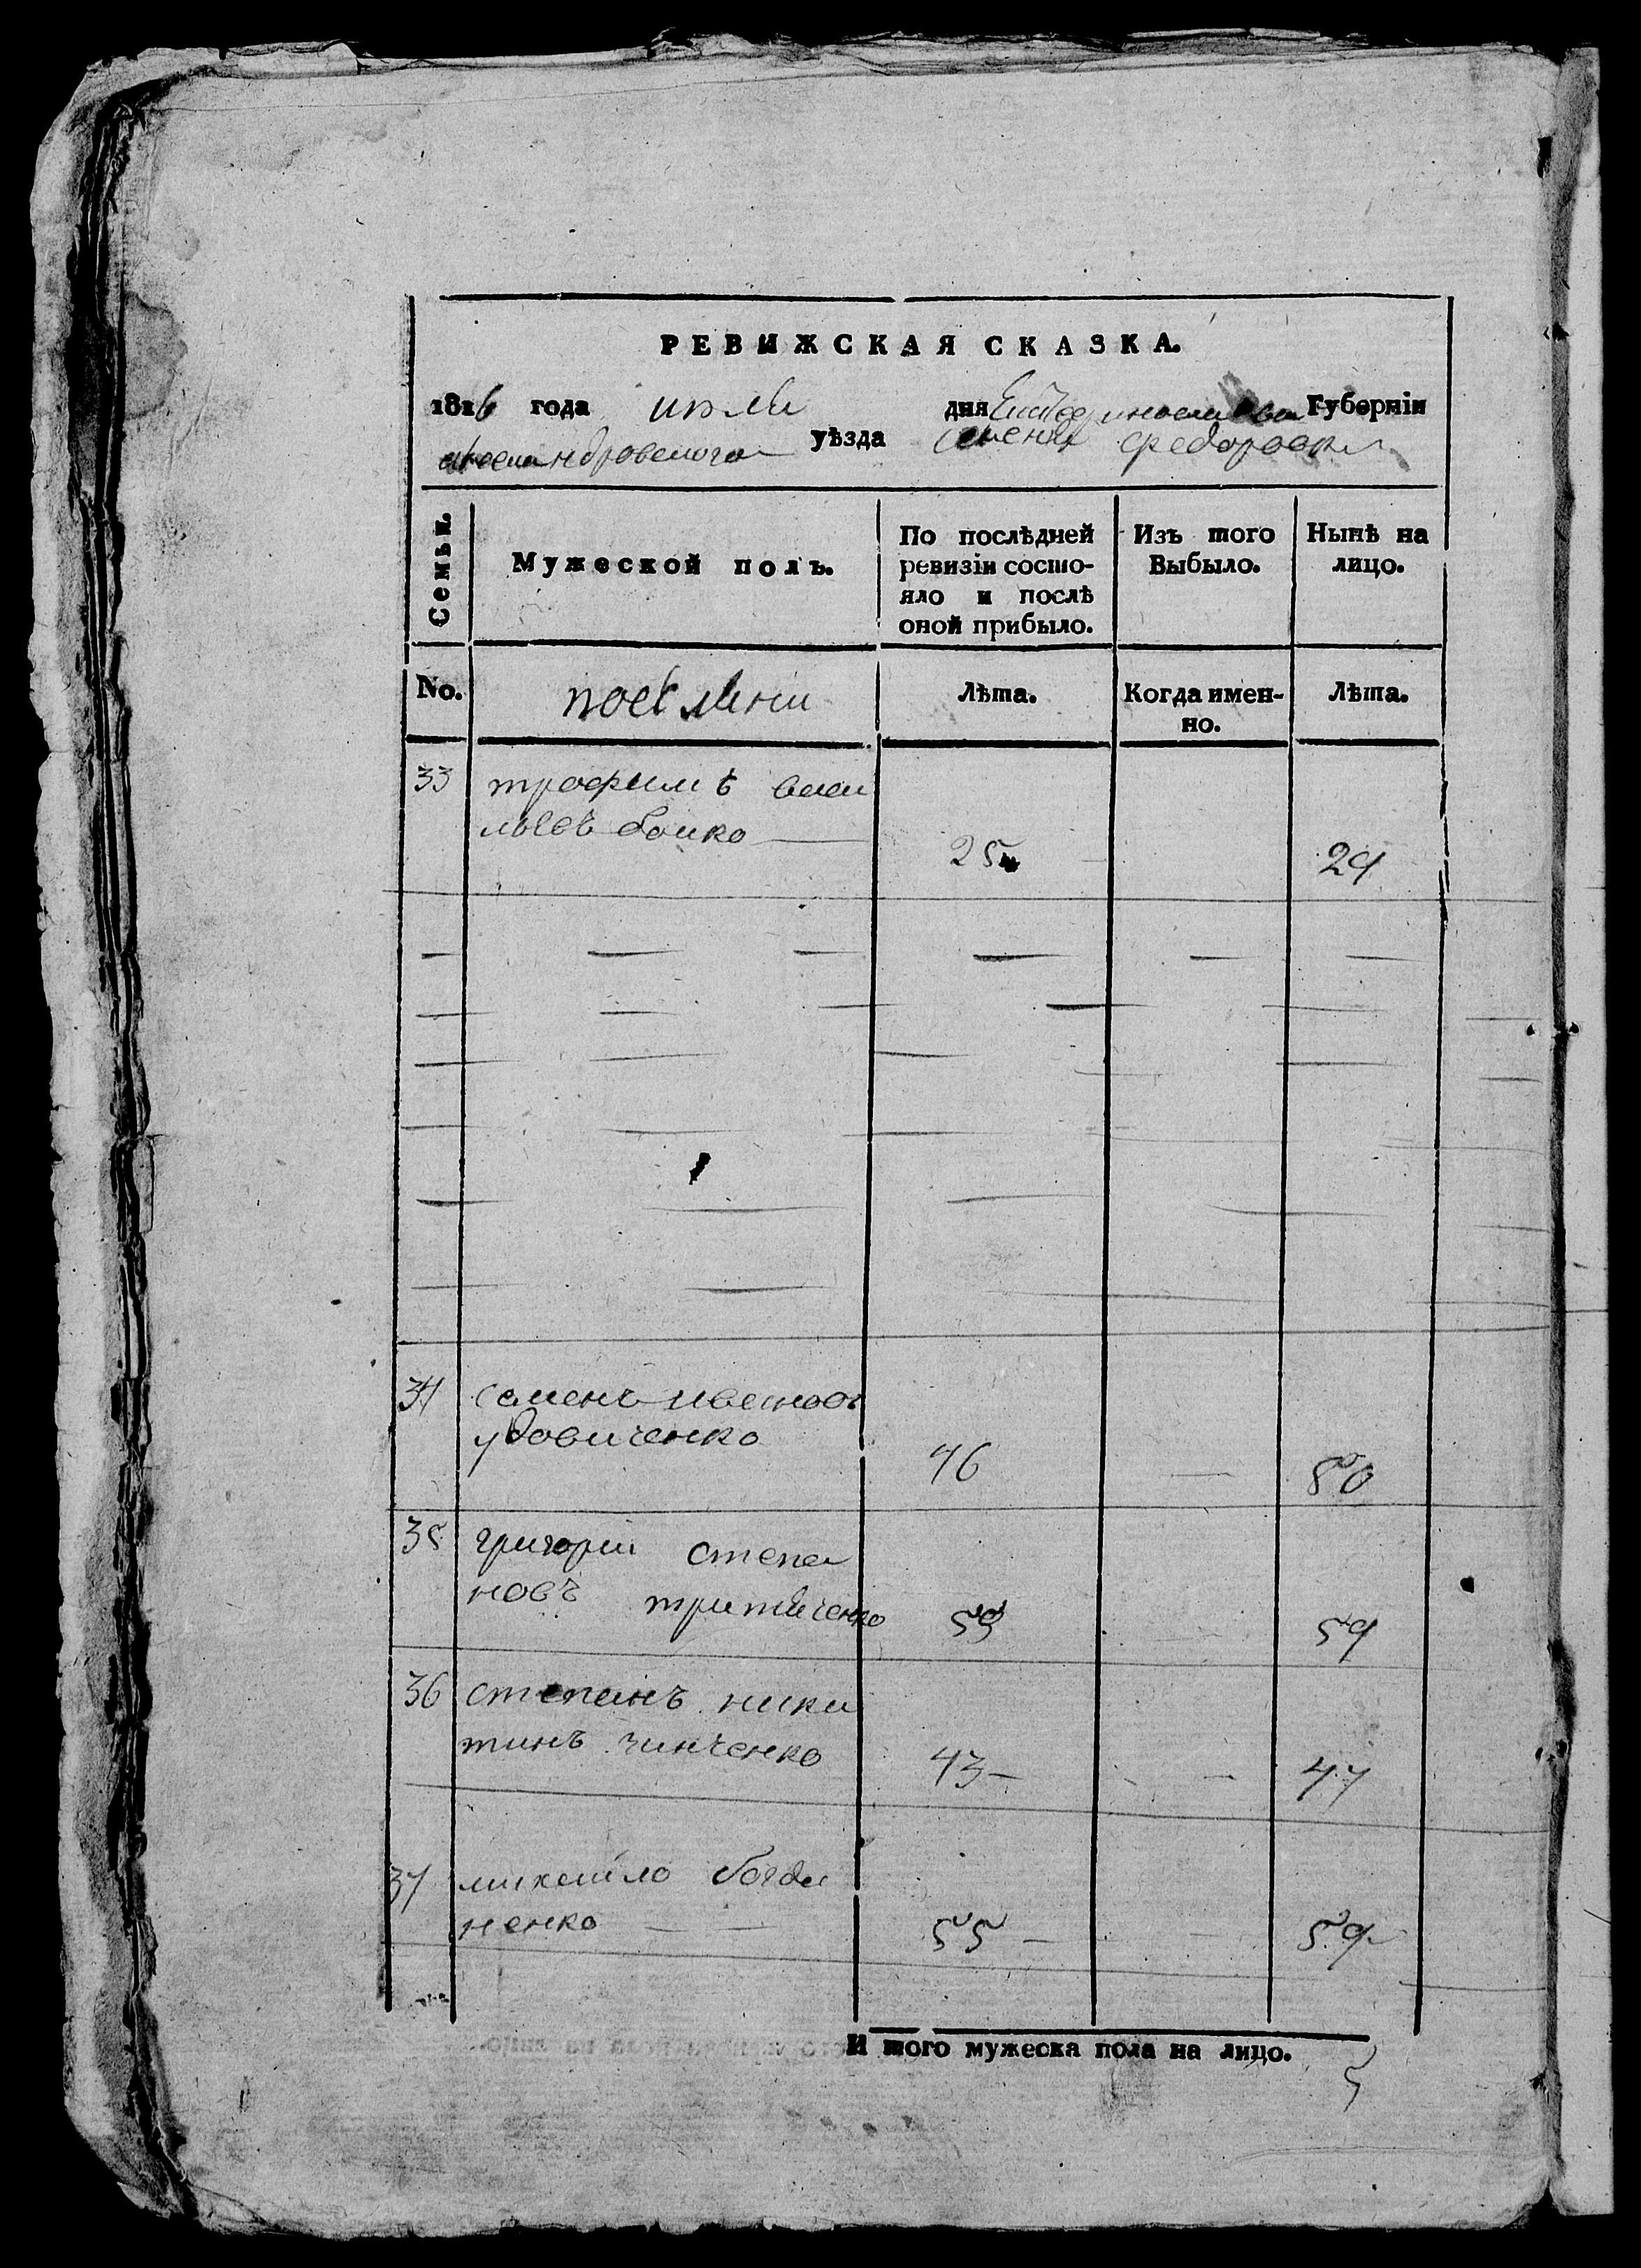 РЕВИЖСКАЯ СКАЗКА.
1816 года июля дня Екатеринославской Губерніи
александровского уѣзда селения федоровки
Семьи. Мужеской полъ. По послѣдней ревизіи состояло и послѣ оной прибыло. Изъ того Выбыло. Нынѣ на лицо.
No. Лѣта. Когда именно. Лѣта.
33 трофимъ васи
льевъ боико 25 29
34 семенъ ивановъ
удовиченко 46 50
35 григории степа
новъ 55 59
36 степанъ ники
тинъ зинченко 43 47
37 михаило богда
ненко 55 59
И того мужеска пола на лицо. 5